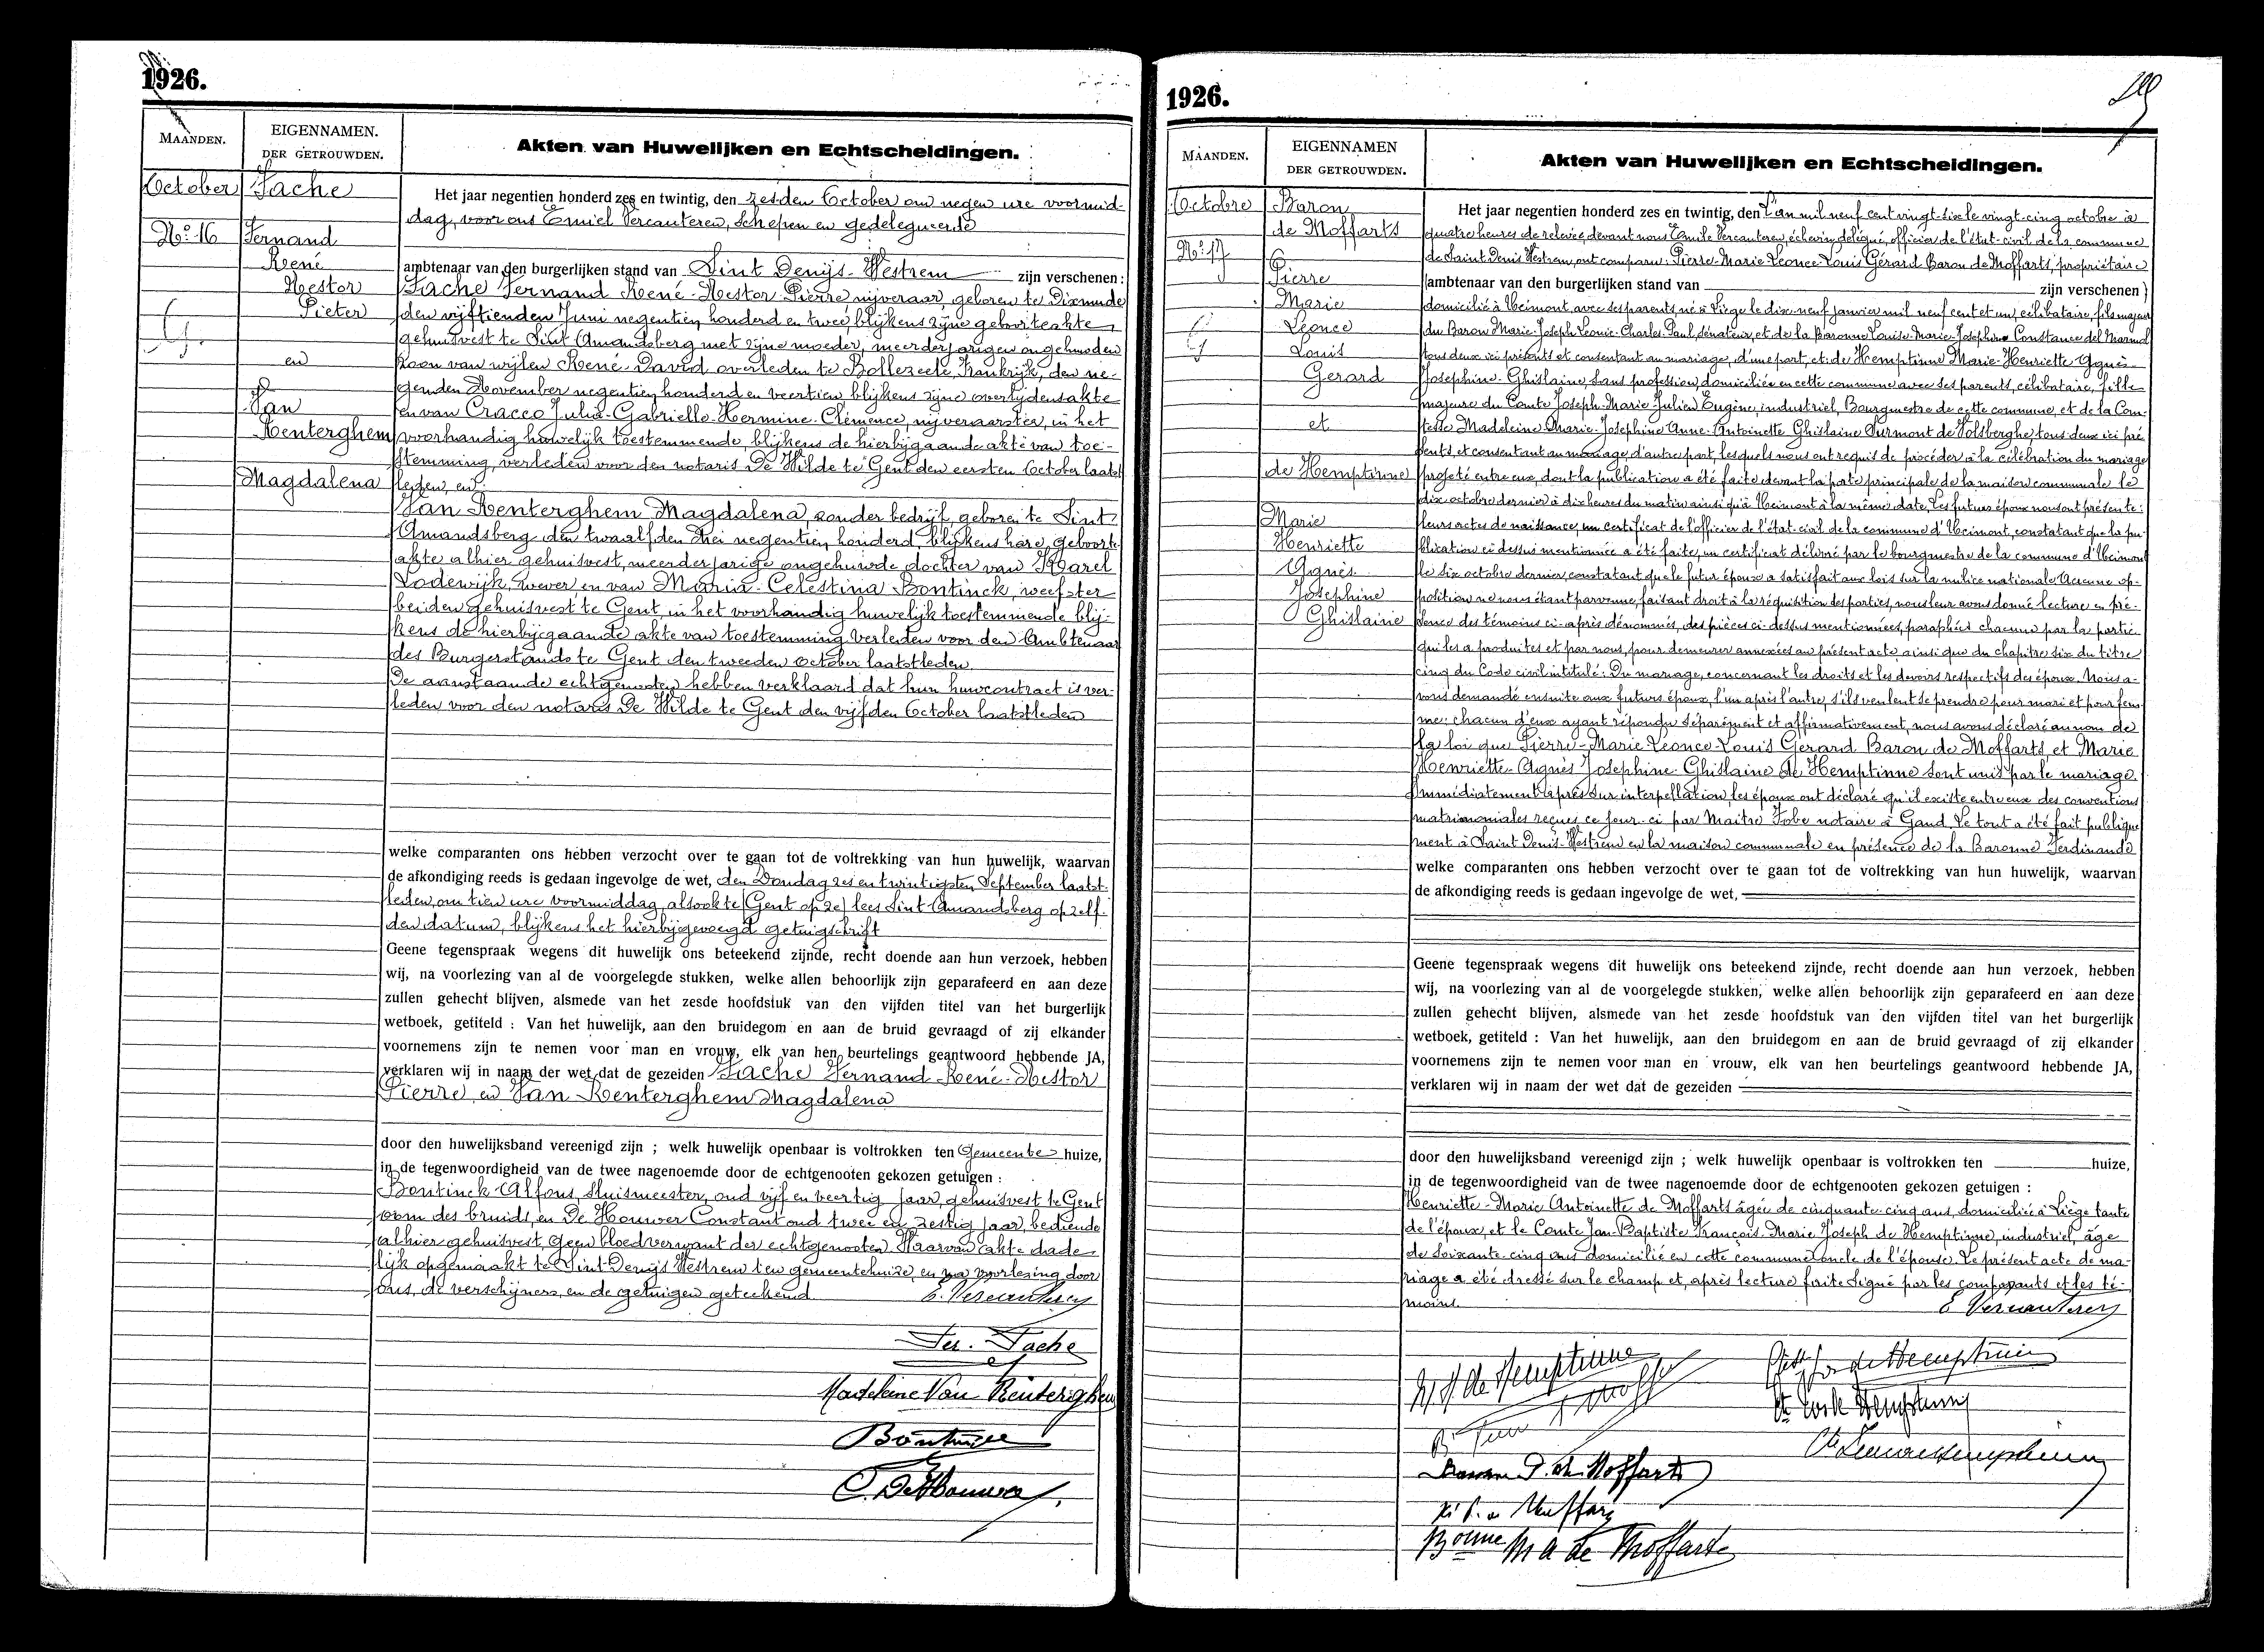 1926.
MAANDEN.
EIGENNAMEN.
DER GETROUWDEN.
Akten van Huwelijken en Echtscheidingen.
October
No 16
Tache
Fernand
René
Nestor
Pieter
en
Van
Renterghem
Magdalena
Het jaar negentien honderd zes en twintig, den zesden October om negen ure voormid-
dag, voor ons Emiel Vercauteren, schepen en gedelegueerde
ambtenaar van den burgerlijken stand van Sint Denijs-Westrem zijn verschenen :
Tache Fernand René-Nestor-Pierre nijveraar, geboren te Dixmude
den vijftienden Juni negentien honderd en twee, blijkens zijne geboorteakte
gehuisvest te Sint Amandsberg met zijne moeder, meerderjarigen ongehuwden
zoon van wijlen René-David overleden te Bollezeele, Frankrijk, den ne-
genden November negentien honderd en veertien blijkens zijne overlijdensakte
en van Cracco Julia-Gabrielle-Hermine-Clémence, nijveraarster, in het
voorhandig huwelijk toestemmende, blijkens de hierbijgaande akte van toe-
stemming, verleden voor den notaris De Wilde te Gent den eersten October laatst
leden, en
Van Renterghem Magdalena, zonder bedrijf, geboren te Sint
Amandsberg den twaalfden Mei negentien honderd, blijkens hare geboorte
akte alhier gehuisvest, meerderjarige ongehuwde dochter van Karel
Lodewijk, wever en van Maria-Celestina Bontinck, weefster
beiden gehuisvest te Gent, in het voorhandig huwelijk toestemmende blij-
kens de hierbijgaande akte van toestemming verleden voor den Ambtenaar
des Burgerstands te Gent den tweeden October laatstleden.
De aanstaande echtgenooten hebben verklaard dat hun huwcontract is ver-
leden voor den notaris De Wilde te Gent den vijfden October laatstleden
welke comparanten ons hebben verzocht over te gaan tot de voltrekking van hun huwelijk, waarvan
de afkondiging reeds is gedaan ingevolge de wet, den Zondag zes en twintigsten September laatst-
leden, om tien ure voormiddag, alsook te (Gent op ze) lees Sint Amandsberg op zelf-
den datum, blijkens het hierbijgevoegd getuigschrift
Geene tegenspraak wegens dit huwelijk ons beteekend zijnde, recht doende aan hun verzoek, hebben
wij, na voorlezing van al de voorgelegde stukken, welke allen behoorlijk zijn geparafeerd en aan deze
zullen gehecht blijven, alsmede van het zesde hoofdstuk van den vijfden titel van het burgerlijk
wetboek, getiteld : Van het huwelijk, aan den bruidegom en aan de bruid gevraagd of zij elkander
voornemens zijn te nemen voor man en vrouw, elk van hen beurtelings geantwoord hebbende JA,
verklaren wij in naam der wet dat de gezeiden Tache Fernand-René-Nestor
Pierre en Van Renterghem Magdalena
door den huwelijksband vereenigd zijn ; welk huwelijk openbaar is voltrokken ten Gemeente huize,
in de tegenwoordigheid van de twee nagenoemde door de echtgenooten gekozen getuigen :
Bontinck Alfons, sluismeester, oud vijf en veertig jaar, gehuisvest te Gent
oom des bruids, en De Houwer Constant oud twee en zestig jaar, bediende
alhier gehuisvest, geen bloedverwant der echtgenooten. Waarvan akte dade-
lijk opgemaakt te Sint Denijs Westrem ten gemeentehuize, en na voorlezing door
ons, de verschijners, en de getuigen geteekend.
E. Vercauteren
Fer. Tache
Madeleine Van Renterghem
Bontinck
C. De Houwer
1926.
MAANDEN.
EIGENNAMEN
DER GETROUWDEN.
Akten van Huwelijken en Echtscheidingen.
Octobre
No 17
Baron
de Moffarts
Pierre
Marie
Léonce
Louis
Gerard
et
de Hemptinne
Marie
Henriette
Agnès
Josephine
Ghislaine
Het jaar negentien honderd zes en twintig, den L'an mil neuf cent vingt-six le vingt-cinq octobre à
quatre heures de relevée, devant nous Emile Vercauteren échevin délégué, officier de l'état-civil de la commune
de Saint Denis Westrem, ont comparu: Pierre-Marie-Léonce-Louis Gérard Baron de Moffarts, propriétaire
ambtenaar van den burgerlijken stand van zijn verschenen
domicilié à Xeimont, avec ses parents né à Liège le dix-neuf janvier mil neuf cent et un, célibataire, fils majeur
du Baron Marie-Joseph-Léonie-Charles-Paul, sénateur, et de la Baronne Louise-Marie-Josephine Constance del Marmol
tous deux ici présents et consentant au mariage, d'une part, et: de Hemptinne Marie-Henriette Agnès
Josephine-Ghislaine, sans profession, domiciliée en cette commune avec ses parents, célibataire, fille
majeure du Comte Joseph-Marie Julien Eugène, industriel, Bourgmestre de cette commune, et de la Com-
tesse Madeleine-Marie-Josephine Anne-Antoinette Ghislaine Surmont de Volsberghe, tous deux ici pré
sents, et consentant au mariage, d'autre part, lesquels nous ont requis de procéder à la célébration du mariage
projeté entre eux, dont la publication a été faite devant la porte principale de la maison communale le
dix octobre dernier à dix heures du matin ainsi qu'à Xeimont à la même date. Les futurs époux nous ont présenté:
leurs actes de naissance, un certificat de l'officier de l'état-civil de la commune d'Xeimont, constatant que la pu-
blication ci dessus mentionnée a été faite, un certificat délivré par le bourgmestre de la commune d'Xeimont
le six octobre dernier, constatant que le futur époux a satisfait aux lois sur la milice nationale. Aucune op-
position ne nous étant parvenue, faisant droit à la réquisition des parties, nous leur avons donné lecture en pré-
sence des témoins ci-après dénommés, des pièces ci-dessus mentionnées, paraphées chacune par la partie
qui les a produites et par nous, pour demeurer annexées au présent acte, ainsi que du chapitre six du titre
cinq du Code civil intitulé: Du mariage, concernant les droits et les devoirs respectifs des époux. Nous a-
vons demandé ensuite aux futurs époux, l'un après l'autre, s'ils veulent se prendre pour mari et pour fem-
me: chacun d'eux ayant répondu séparément et affirmativement, nous avons déclaré au nom de
la loi que Pierre-Marie Léonce-Louis Gerard Baron de Moffarts et Marie
Henriette-Agnès Josephine-Ghislaine de Hemptinne sont unis par le mariage.
Immédiatement après sur interpellation, les époux ont déclaré qu'il existe entre eux des conventions
matrimoniales reçues ce jour-ci par Maître Fobe notaire à Gand. Le tout a été fait publique
ment à Saint Denis-Westrem en la maison communale en présence de la Baronne Ferdinande
welke comparanten ons hebben verzocht over te gaan tot de voltrekking van hun huwelijk, waarvan
de afkondiging reeds is gedaan ingevolge de wet,
Geene tegenspraak wegens dit huwelijk ons beteekend zijnde, recht doende aan hun verzoek, hebben
wij, na voorlezing van al de voorgelegde stukken, welke allen behoorlijk zijn geparafeerd en aan deze
zullen gehecht blijven, alsmede van het zesde hoofdstuk van den vijfden titel van het burgerlijk
wetboek, getiteld : Van het huwelijk, aan den bruidegom en aan de bruid gevraagd of zij elkander
voornemens zijn te nemen voor man en vrouw, elk van hen beurtelings geantwoord hebbende JA,
verklaren wij in naam der wet dat de gezeiden
door den huwelijksband vereenigd zijn ; welk huwelijk openbaar is voltrokken ten huize,
in de tegenwoordigheid van de twee nagenoemde door de echtgenooten gekozen getuigen :
Henriette-Marie Antoinette de Moffarts âgée de cinquante-cinq ans, domiciliée à Liège tante
de l'époux, et le Comte Jan-Baptiste François-Marie Joseph de Hemptinne, industriel, âgé
de soixante-cinq ans domicilié en cette commune oncle de l'épouse. Le présent acte de ma-
riage a été dressé sur le champ et, après lecture faite signé par les comparants et les té-
moins.
E Vercauteren
de Hemptinne
de Hemptinne
Baron P. de Moffarts
Bonne M A de Moffarts